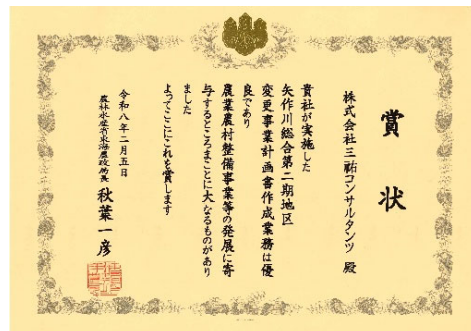 賞状
株式会社三祐コンサルタンツ 殿
貴社が実施した
矢作川総合第二期地区
変更事業計画書作成業務は優
良であり
農業農村整備事業等の発展に寄
与するところまことに大なるものがあり
ました
よってここにこれを賞します
令和八年二月五日
農林水産省東海農政局長 秋葉一彦